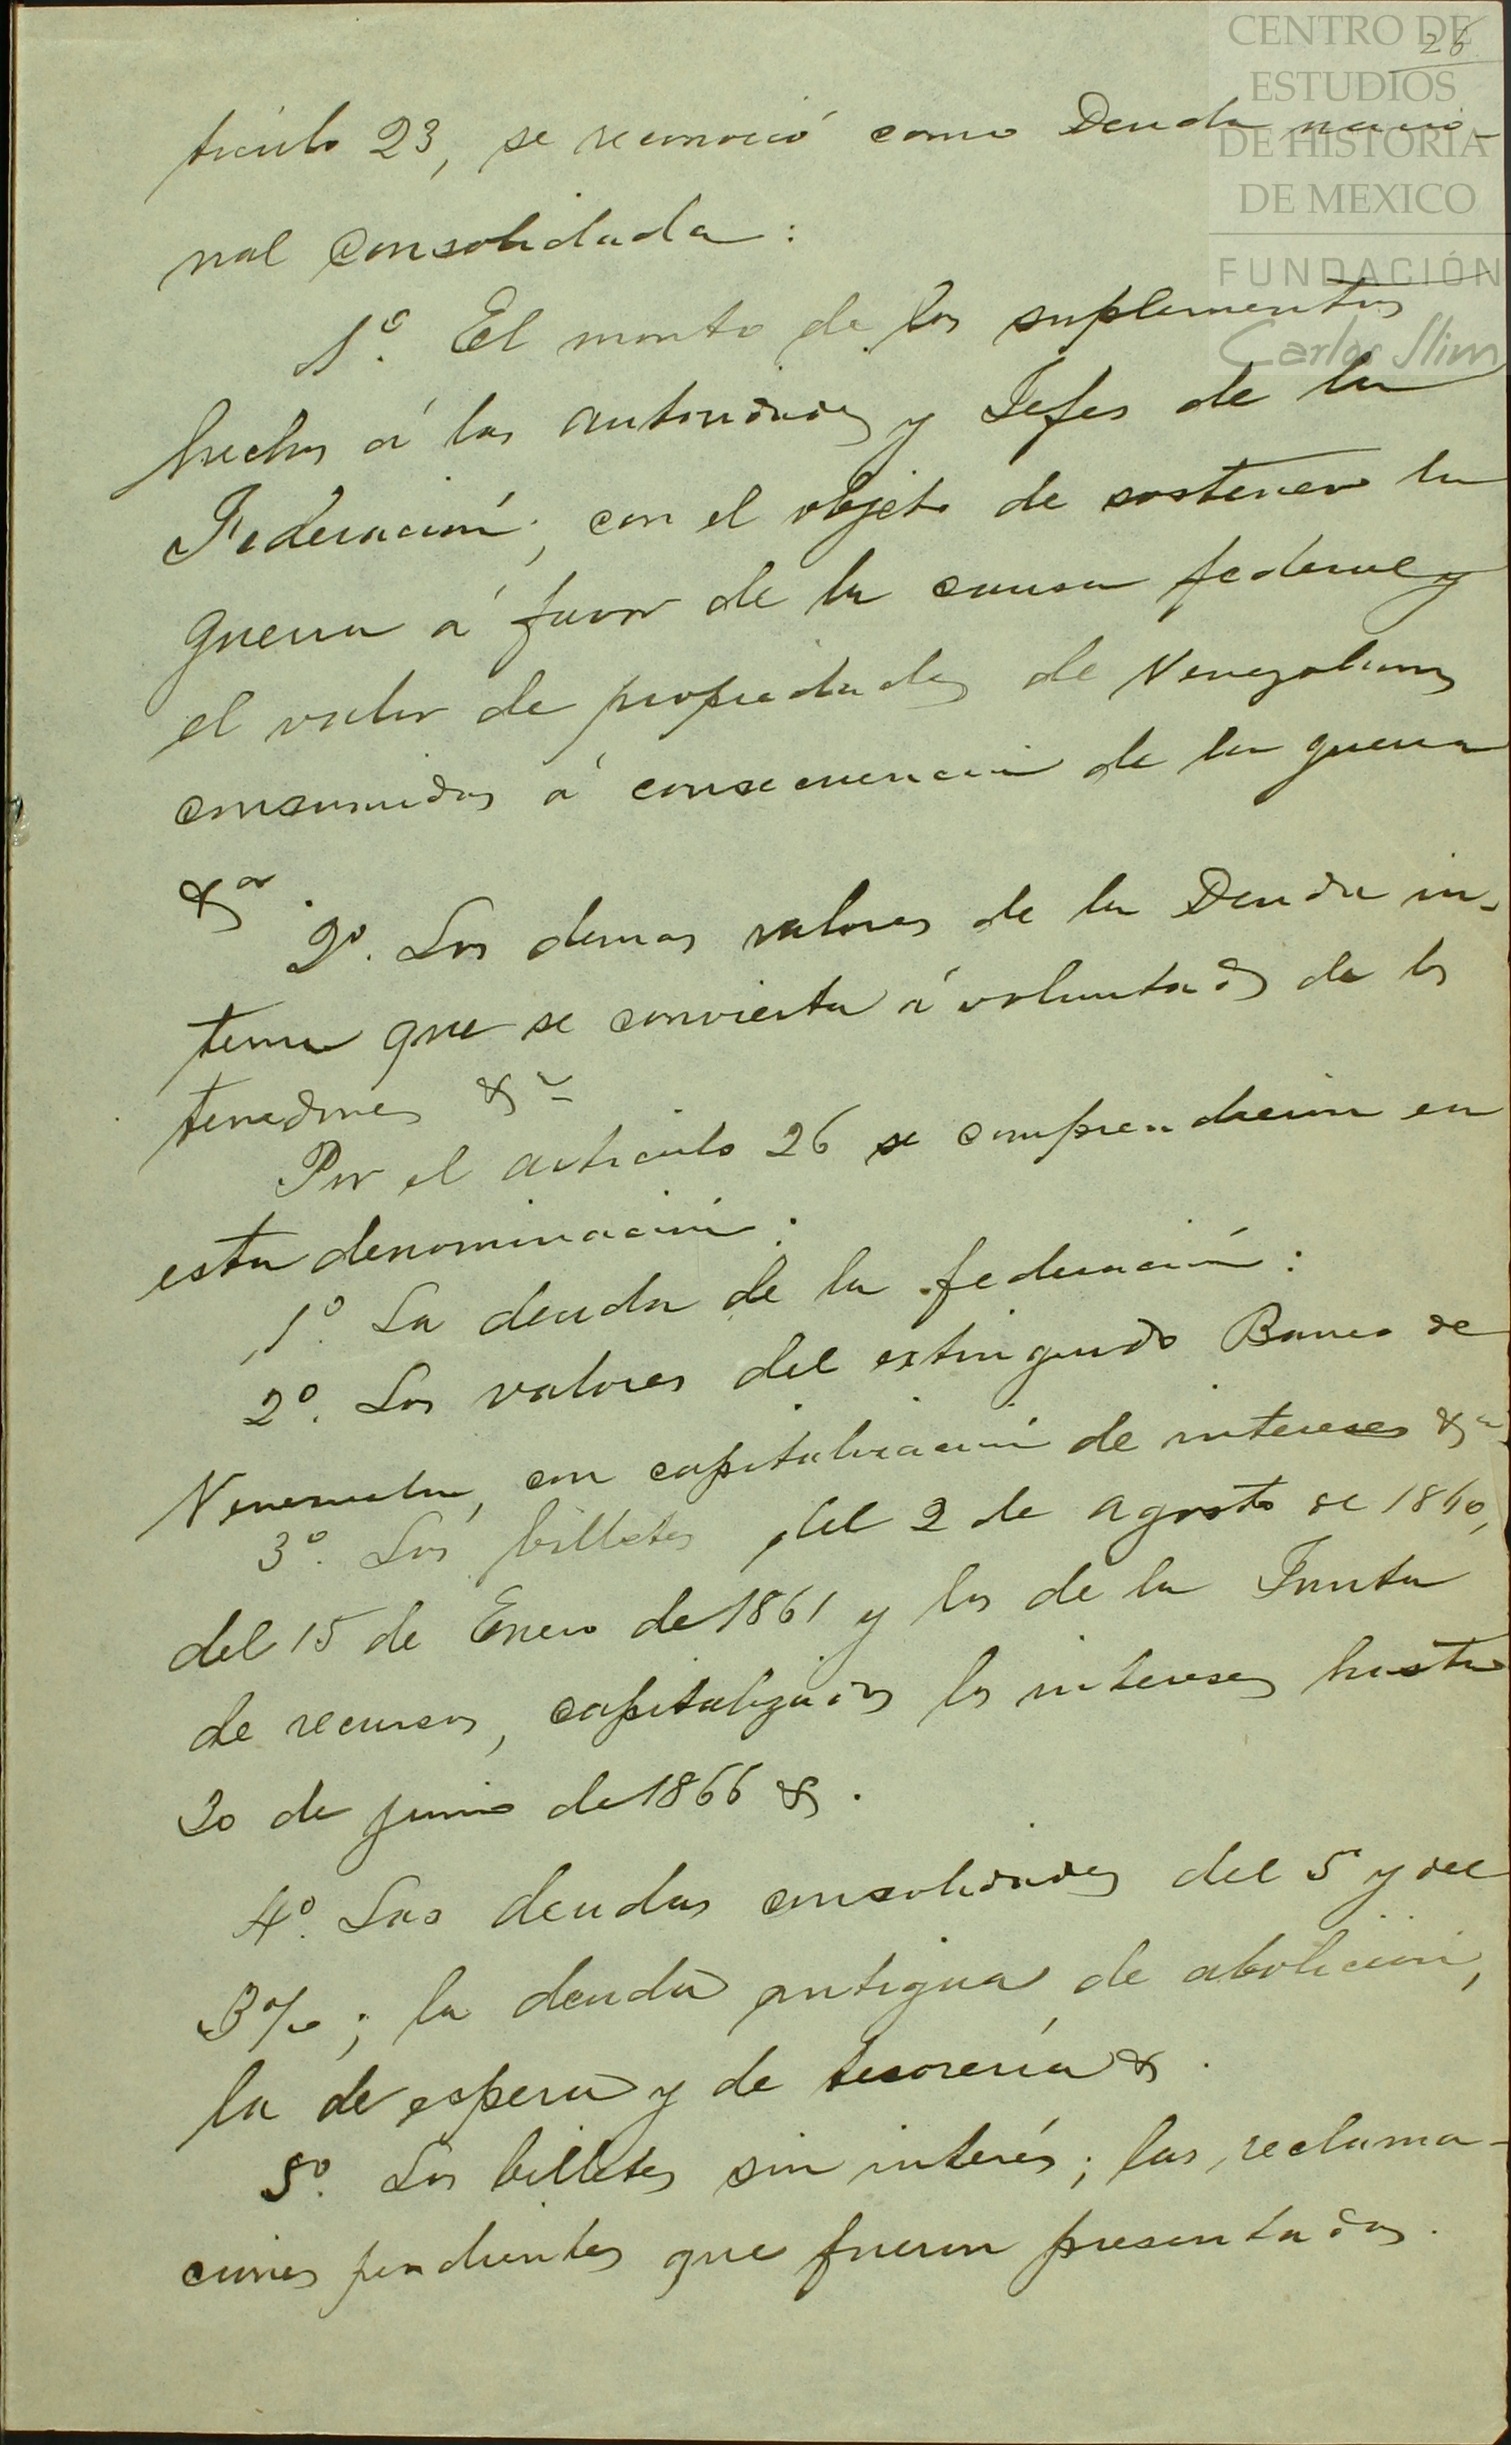 CENTRO DE
ESTUDIOS
DE HISTORIA
DE MEXICO
FUNDACIÓN
Carlos Slim
26
tículo 23, se reconoció como Deuda nacio-
nal consolidada:
1º. El monto de los suplementos
hechos á las autoridades y Jefes de la
Federación, con el objeto de sostener la
guerra á favor de la causa federal y
el valor de propiedades de Venezolanos
consumidas á consecuencia de la guerra
&ª.
2º. Los demas valores de la Deuda in-
terna que se convierta á voluntad de los
tenedores &ª
Por el artículo 26 se comprendieron en
esta denominación:
1º. La deuda de la federación:
2º. Los valores del extinguido Banco de
Venezuela, con capitalización de intereses &ª
3º. Los billetes del 2 de agosto de 1860,
del 15 de Enero de 1861 y los de la Junta
de recursos, capitalizados los intereses hasta
30 de junio de 1866 &.
4º. Las deudas consolidadas del 5 y del
3%; la deuda antigua de abolición,
la de espera y de tesorería &.
5º. Los billetes sin interés; las reclama-
ciones pendientes que fueron presentadas.